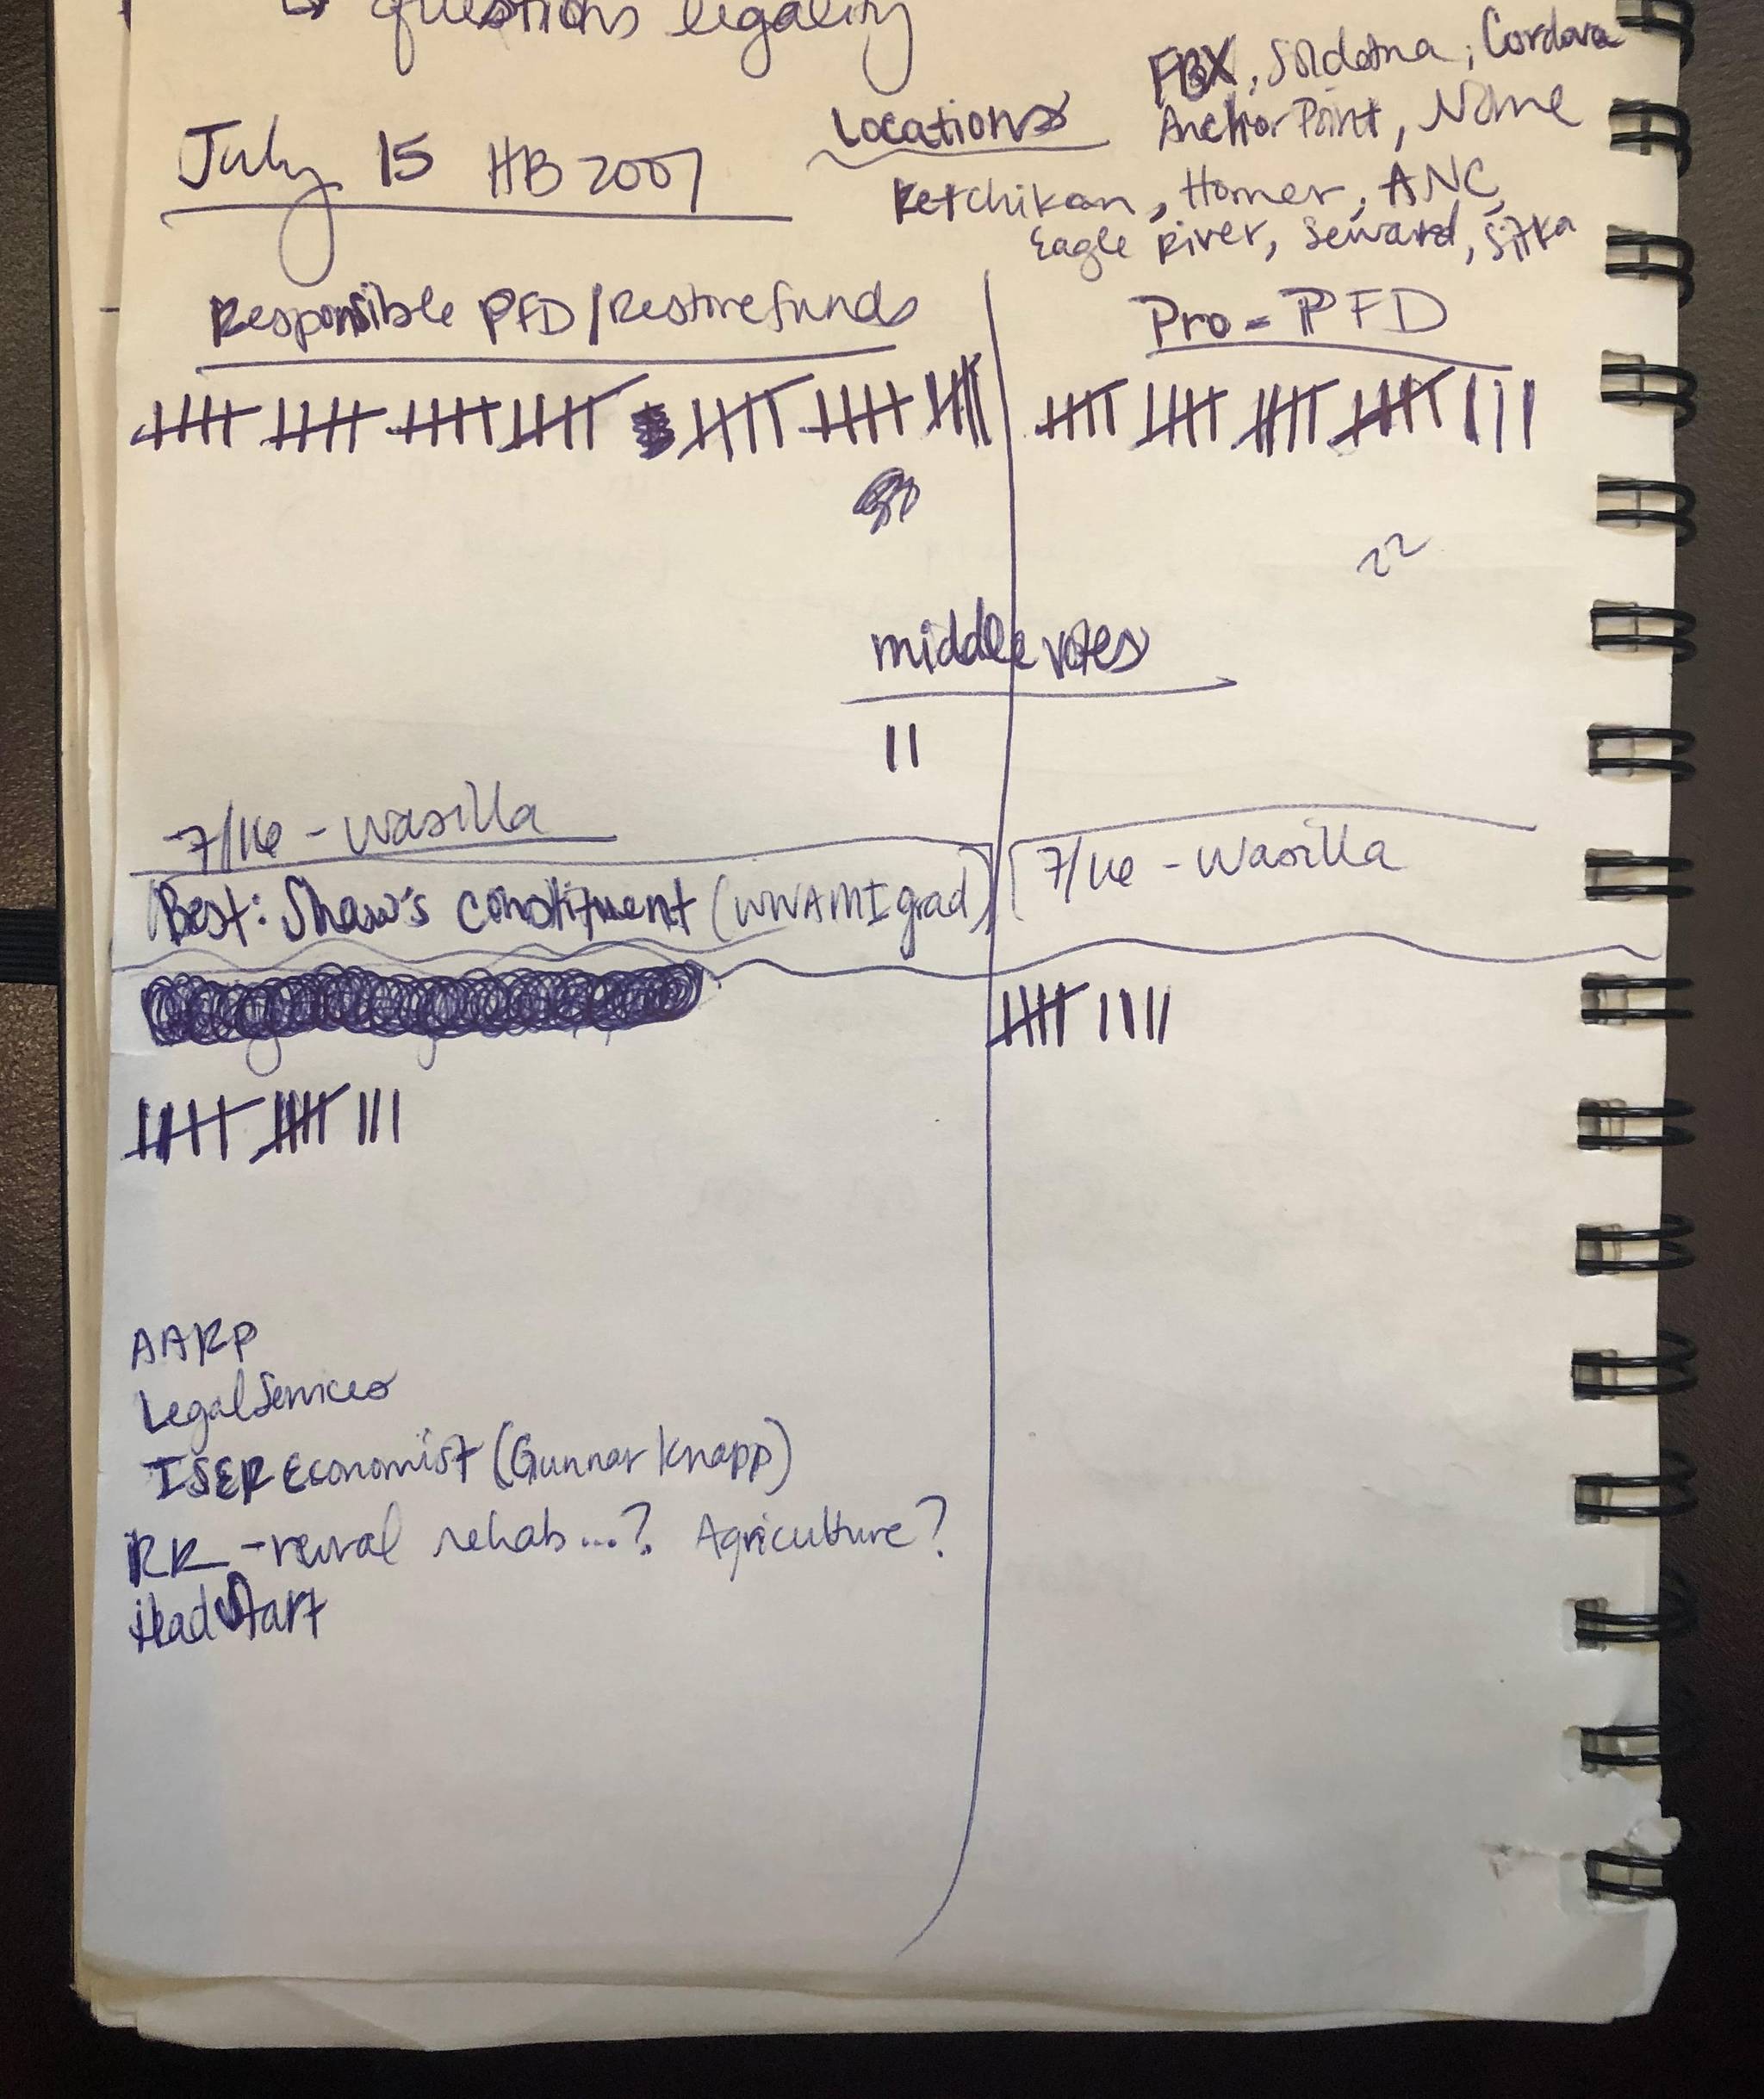 ↳ questions legality
FBX, Soldotna, Cordova
Locations Anchor Point, Nome
July 15 HB 2001
Ketchikan, Homer, ANC,
Eagle River, Seward, Sitka
Responsible PFD/Restore funds
Pro-PFD
22
middle votes
||
7/16 - Wasilla
7/16 - Wasilla
Best: Shaw's constituent (WWAMI grad)
AARP
Legal Services
ISER Economist (Gunnar Knapp)
RR - rural rehab...? Agriculture?
Head Start